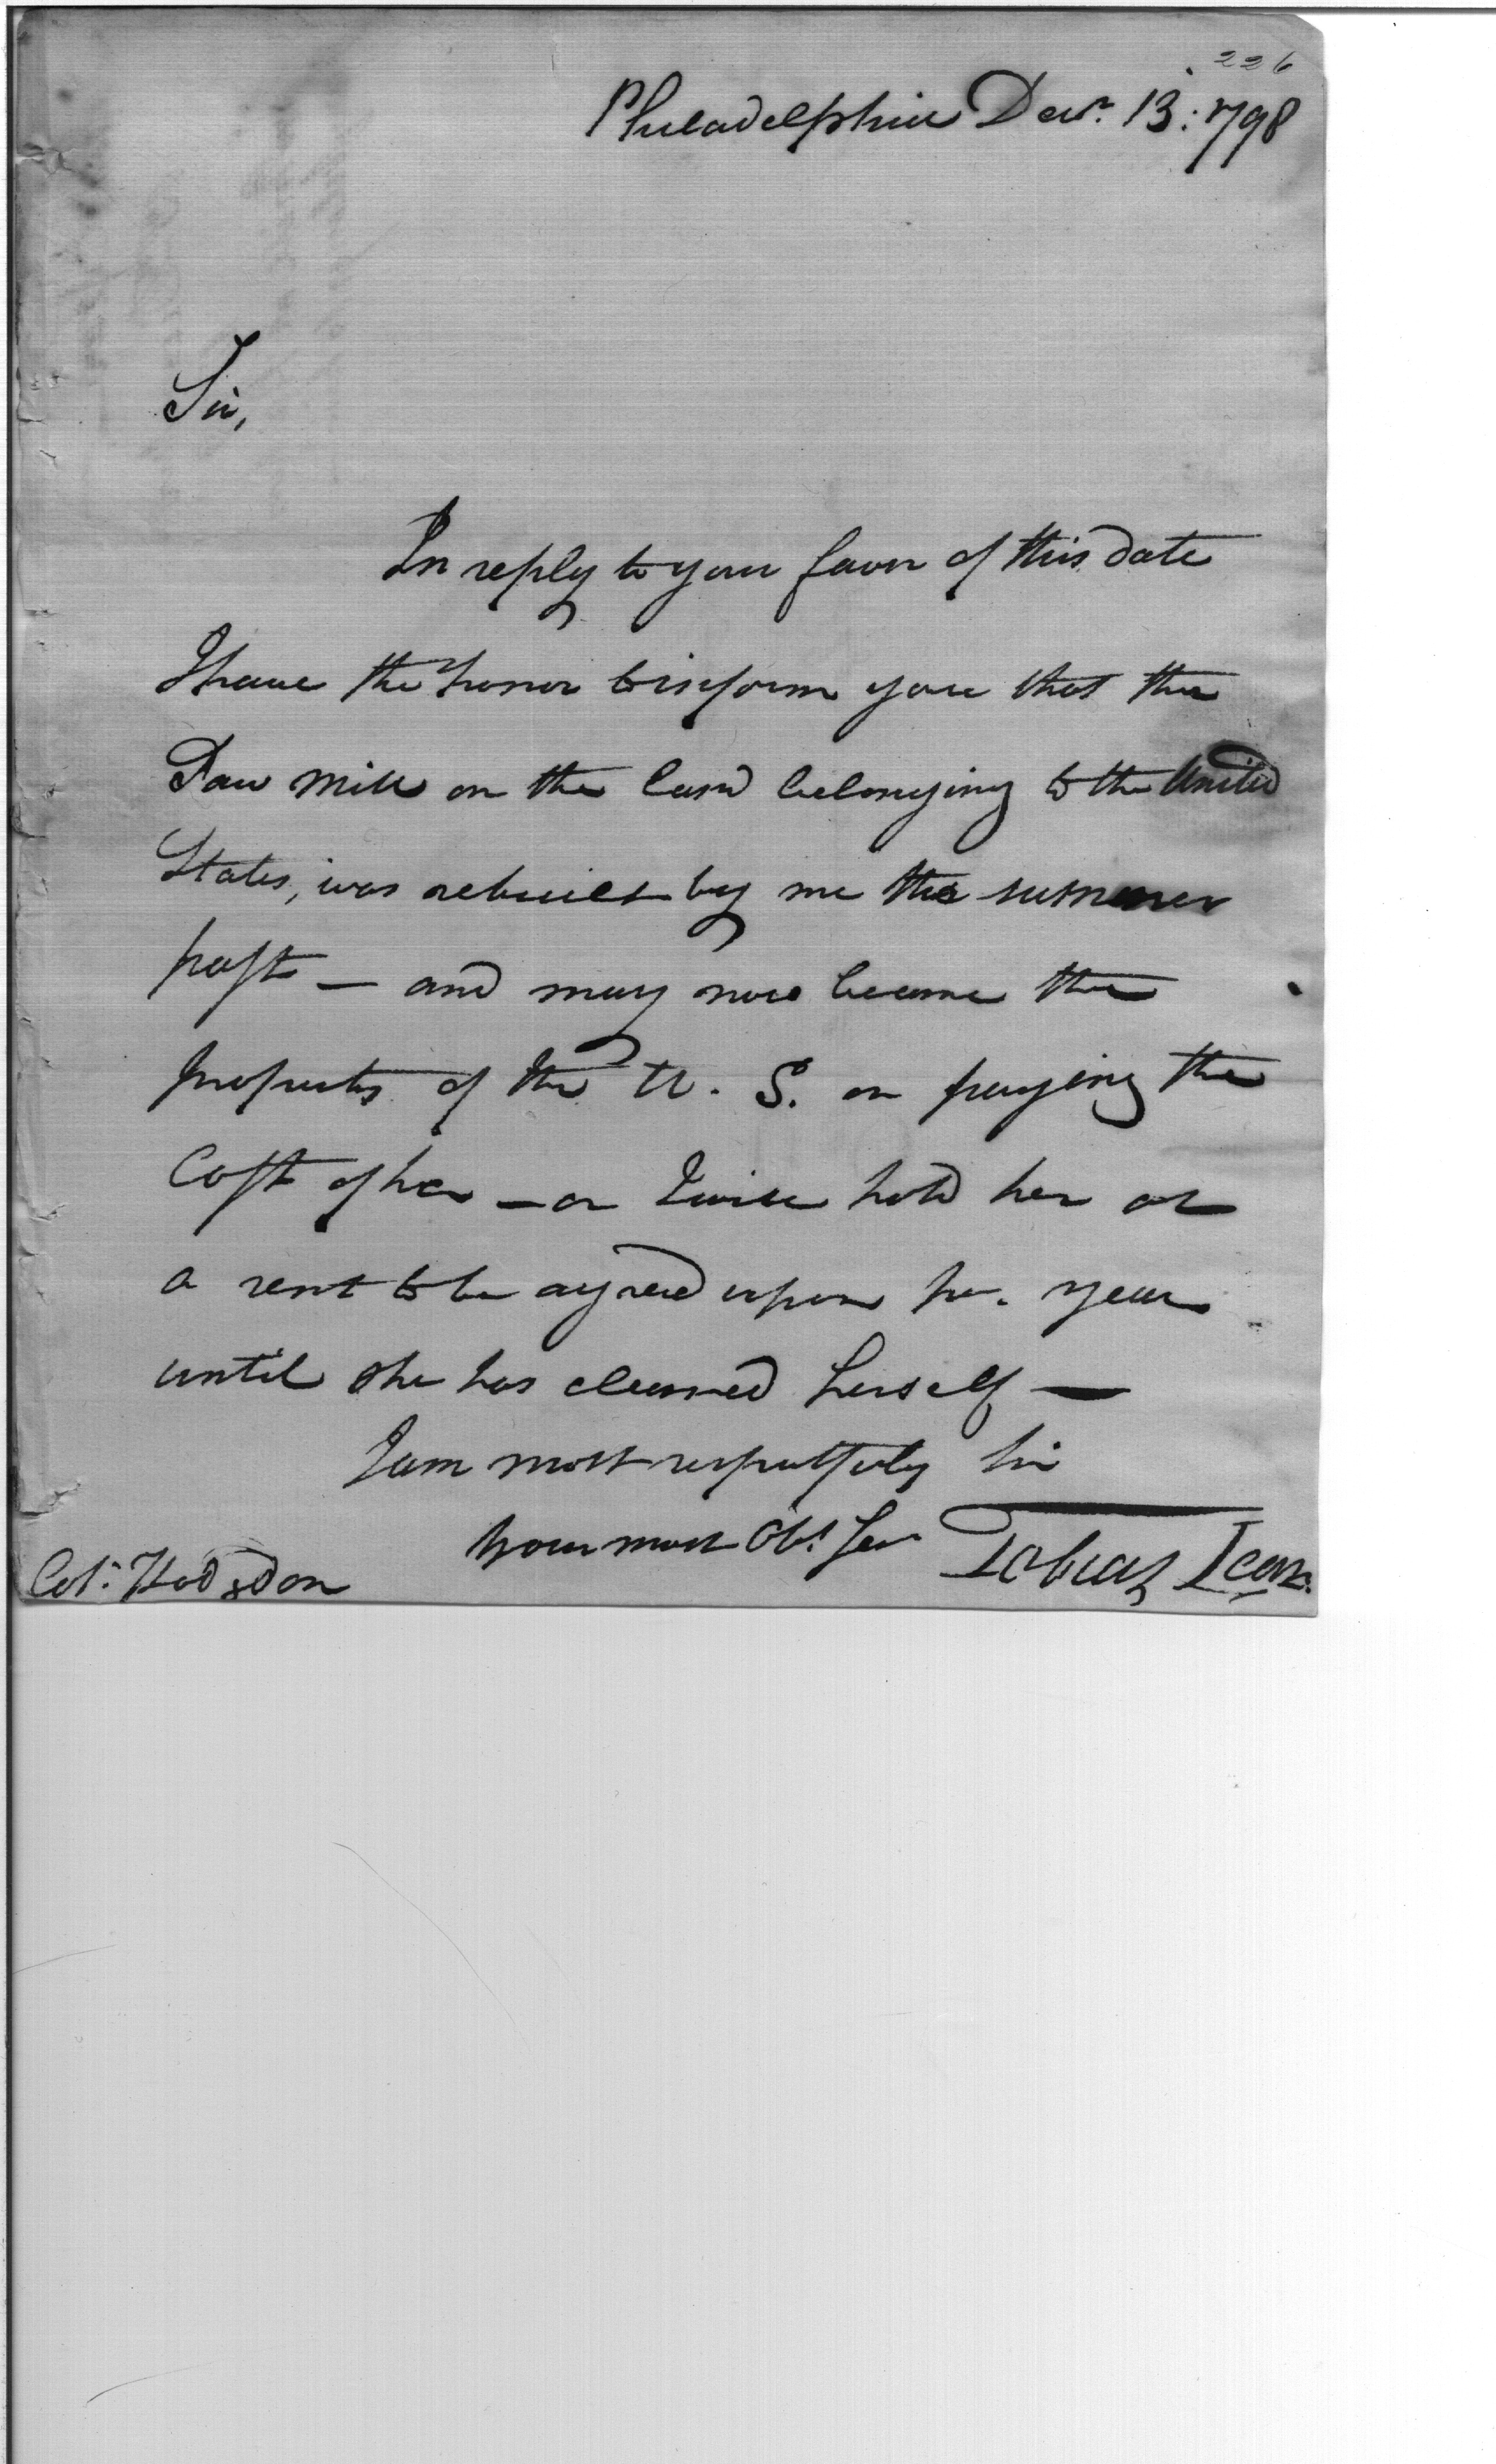 226
Philadelphia Decr. 13: 1798
Sir,
In reply to your favor of this date
I have the honor to inform you that the
Saw Mill on the land belonging to the United
States, was rebuilt by me the summer
past — and may now become the
property of the U. S. on paying the
Cost of her — or I will hold her at
a rent to be agreed upon pr. year
until she has cleared herself —
I am most respectfully Sir
Your most Obt. Ser
Tobias Lear.
Col. Hodgdon